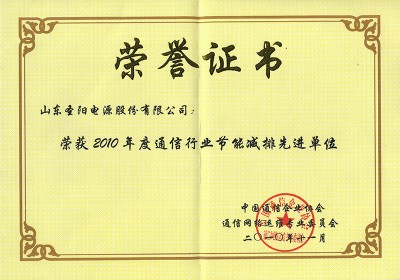 荣誉证书
山东圣阳电源股份有限公司：
荣获2010年度通信行业节能减排先进单位
中国通信企业协会
通信网络运维专业委员会
二〇一〇年十一月